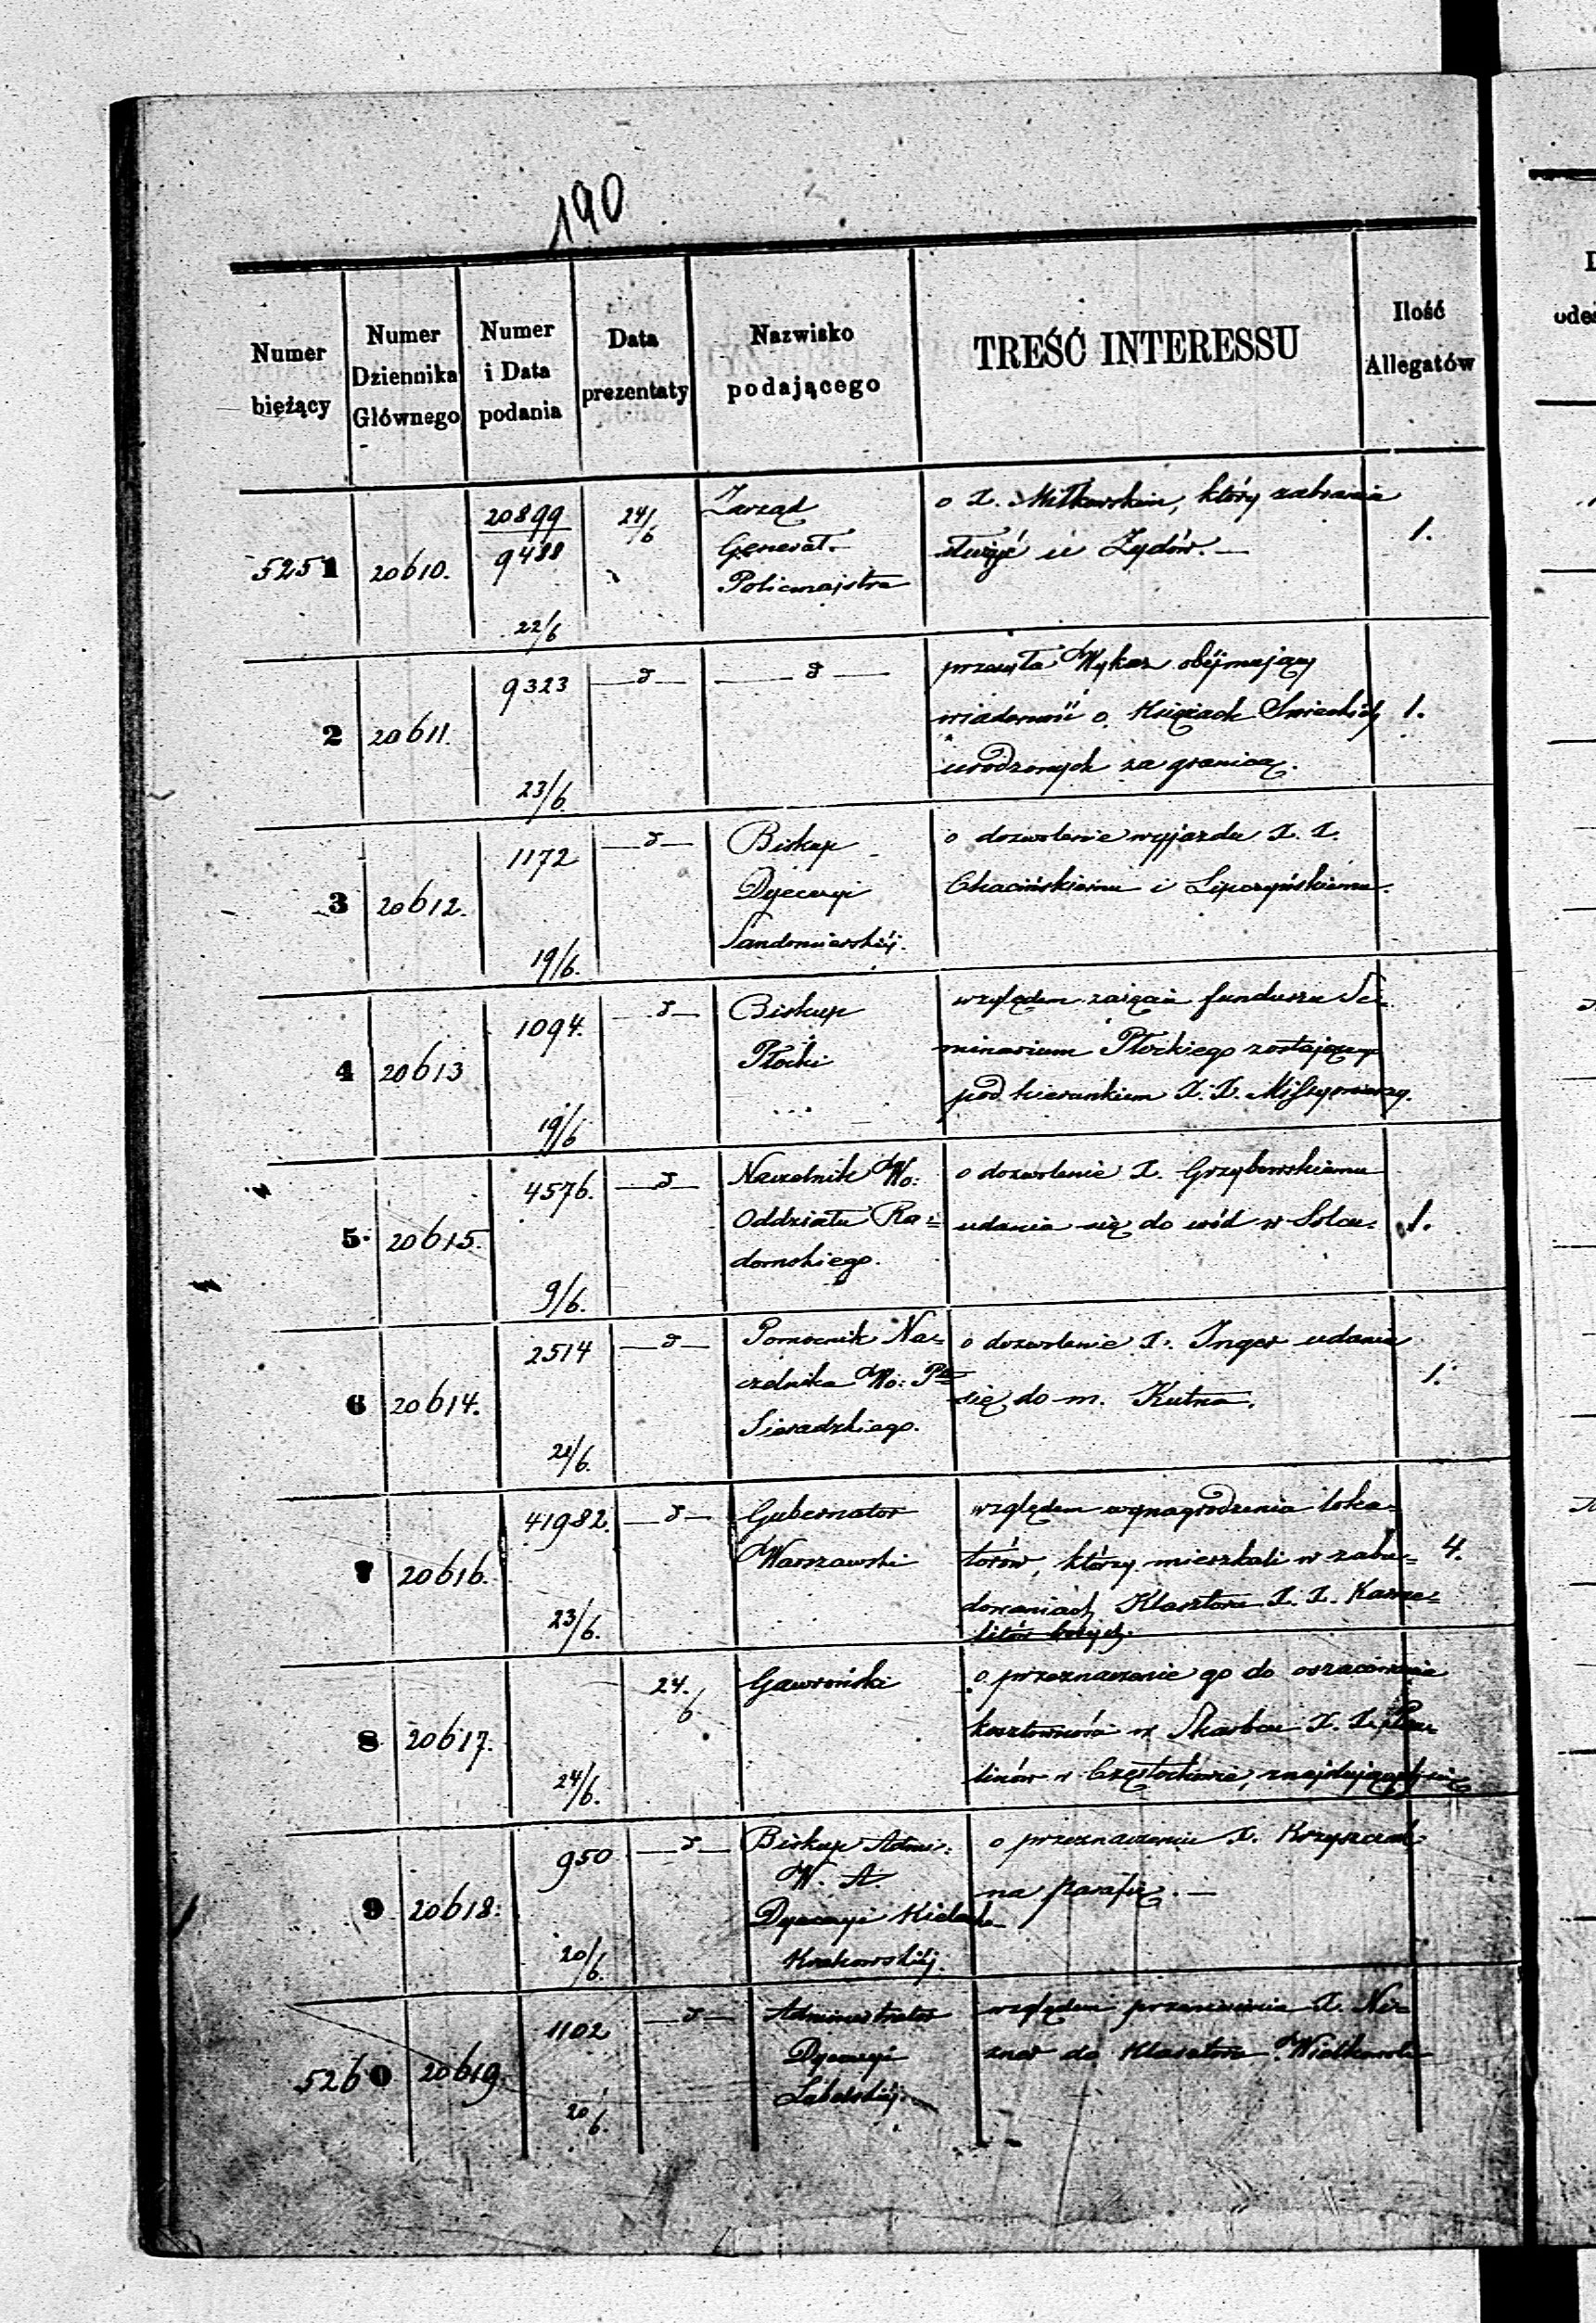 190
Numer bieżący
Numer Dziennika Głównego
Numer i Data podania
Data prezentaty
Nazwisko podającego
TREŚĆ INTERESSU
Ilość Allegatów
5251
20610.
20899
9488
22/6
24/6
Zarząd
Generał.
Policmajstra
o X. Miłkowskim, który zabrania
służyć u Żydów. —
1.
2
20611.
9323
23/6.
— d —
— d —
przesyła Wykaz obejmujący
wiadomość o Księżach Świeckich
urodzonych za granicą.
1.
3
20612.
1172
19/6.
— d —
Biskup
Dyecezyi
Sandomierskiéj.
o dozwolenie wyjazdu X. X.
Chacińskiemu i Lipczyńskiemu.
4
20613
1094.
19/6
— d —
Biskup
Płocki
względem zajęcia funduszu Se=
minarium Płockiego zostającego
pod kierunkiem X. X. Missyonarzy.
5.
20615.
4576.
9/6.
— d —
Naczelnik Wo:
Oddziału Ra=
domskiego.
o dozwolenie X. Grzybowskiemu
udania się do wód w Solcu.
1.
6
20614.
2514
21/6.
— d —
Pomocnik Na=
czelnika Wo: Ptu
Sieradzkiego.
o dozwolenie X. Inger udania
się do m. Kutna.
1.
7
20616.
41982.
23/6.
— d —
Gubernator
Warszawski
względem wynagrodzenia loka=
torów, którzy mieszkali w zabu=
dowaniach Klasztoru X. X. Karme=
litów bosych.
4.
8
20617.
24/6.
24./6
Gawroński
o przeznaczenie go do oszacowania
kosztowności w Skarbcu X. X. Pau=
linów w Częstochowie, znajdujących się
9
20618.
950
20/6.
— d —
Biskup Admi=
W. A.
Dyecezyi Kielecko
Krakowskiéj.
o przeznaczeniu X. Krzyszczak
na parafię. —
5260
20619.
1102
20/6.
— d —
Administrator
Dyecezyi
Lubelskiéj.
względem przeniesienia X.
do Klasztoru